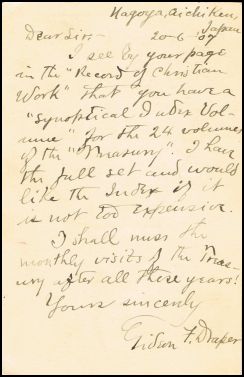 Nagoya, Aichi Ken,
Japan
Dear Sir:- 20-6-'07
I see by your page
in the "Record of Christian
Work" that you have a
"Synoptical Index Vol-
ume" for the 24 volumes
of the "Treasury". I have
the full set and would
like the Index if it
is not too expensive.
I shall miss the
monthly visits of the Treas-
ury after all these years!
Yours sincerely
Gideon F. Draper